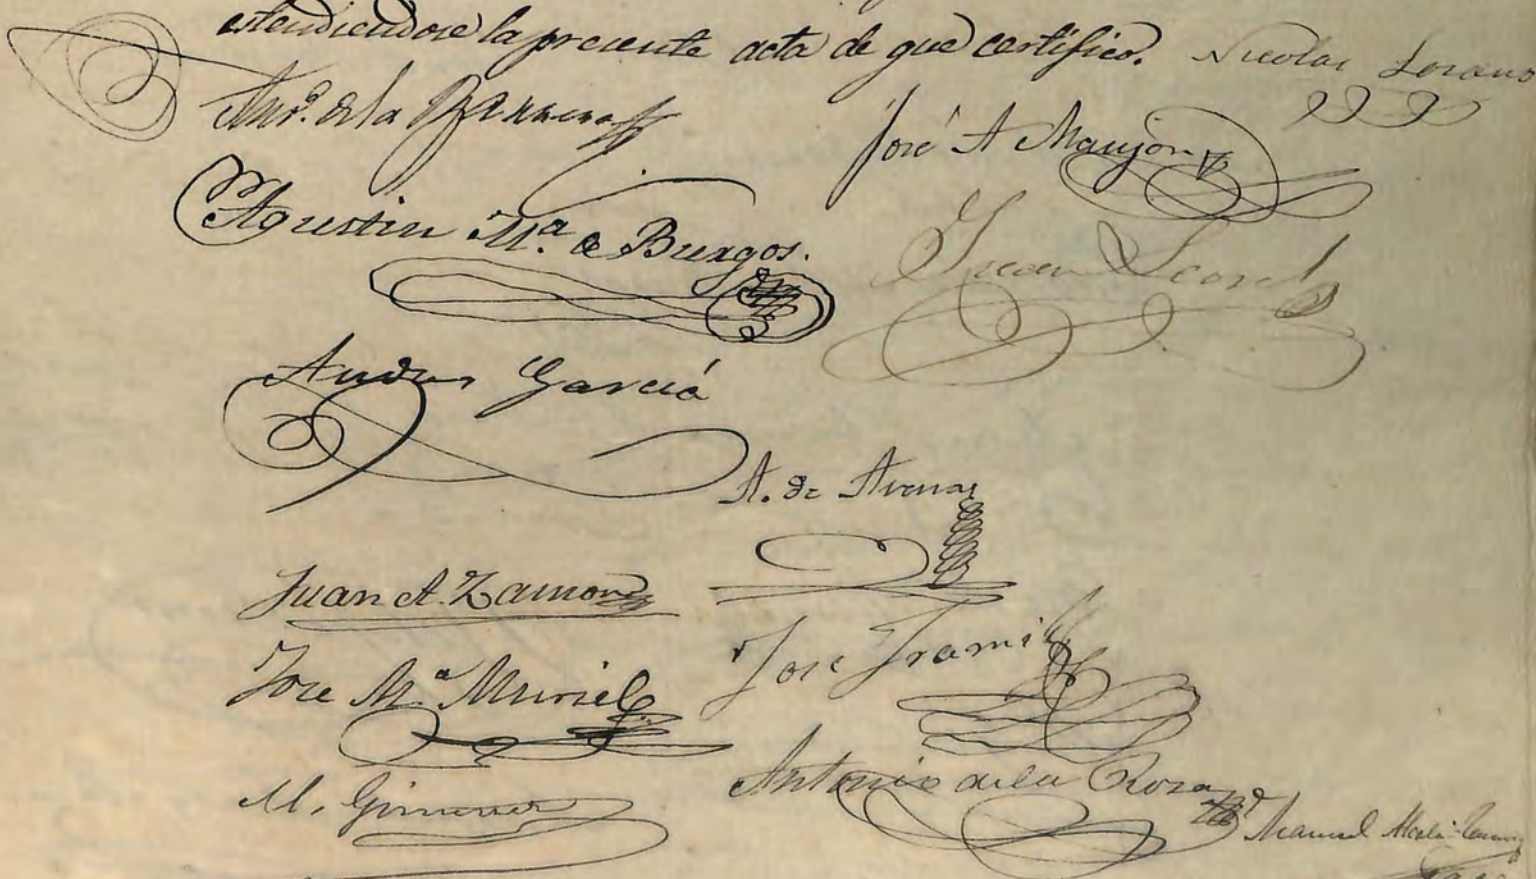 estendiendose la presente acta de que certifico. Nicolas Lozano
Anto. de la Barrera
José A Maujón
Agustin Mª. de Burgos.
Juan Leonel
Andres Garciá
A. de Arenas
Juan A. Zamora
Jose Tramil
Jose Mª. Muriel
M. Gimenez
Antonio de la Rosa
Manuel Alcalá